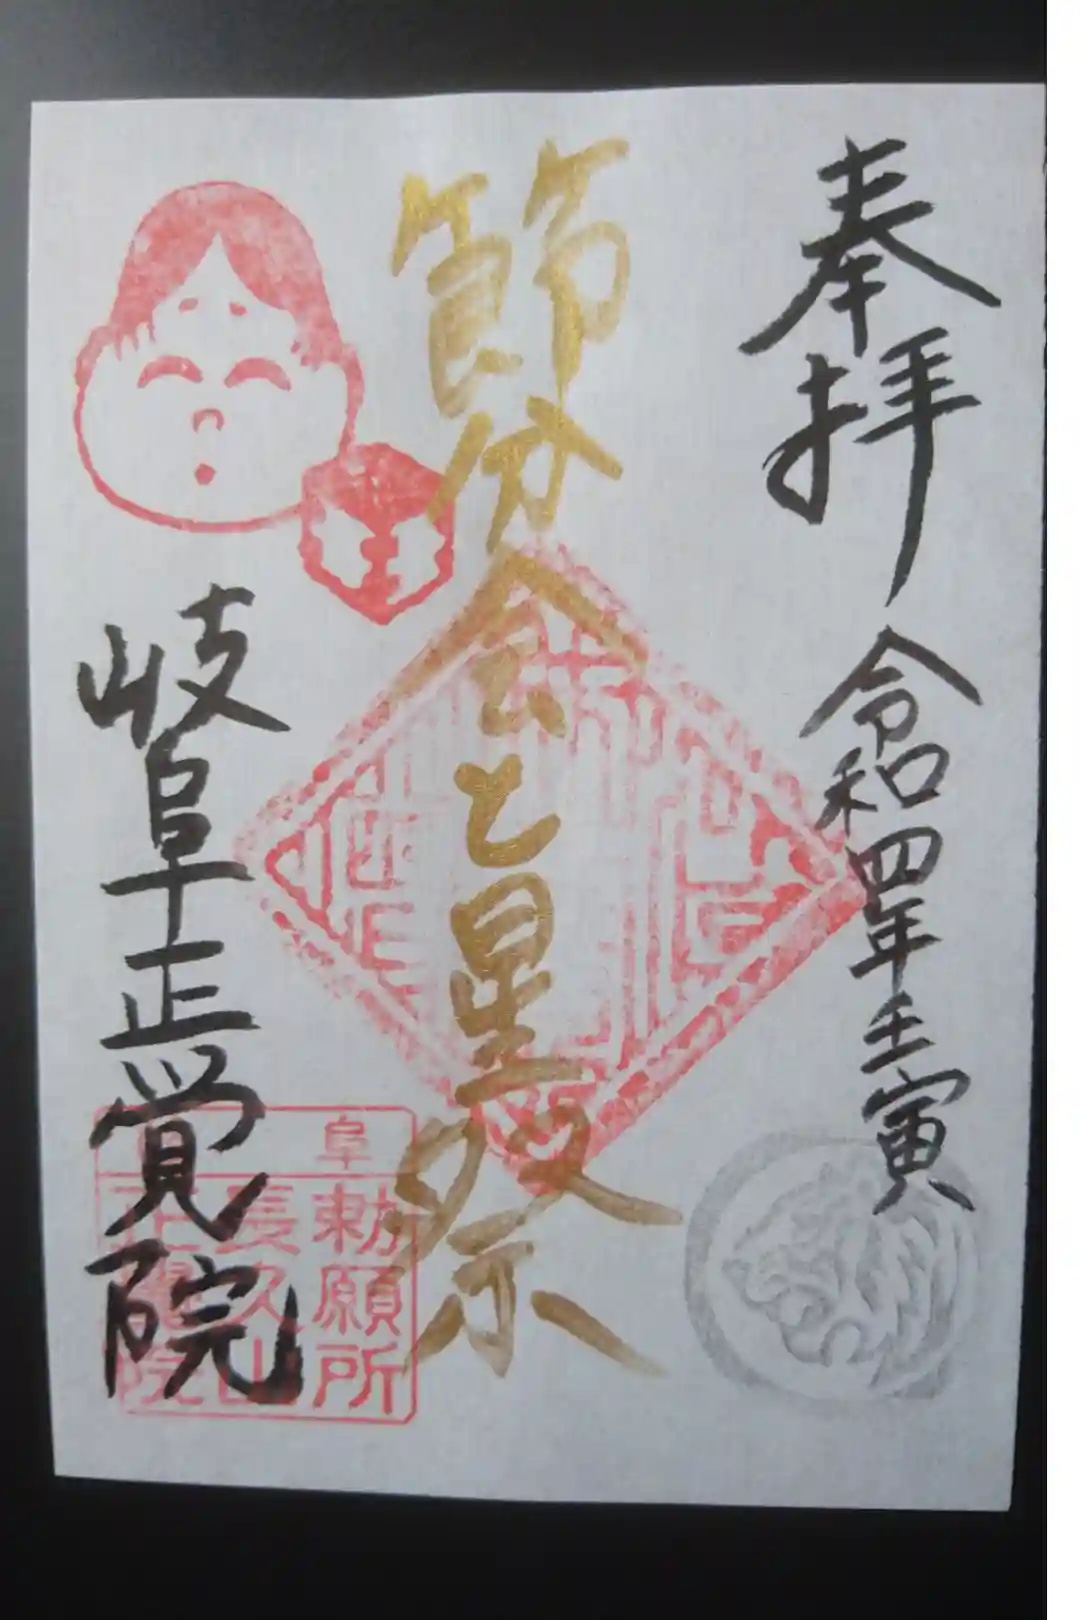 奉拝
令和四年壬寅
節分会と星祭
岐阜正覚院
阜
勅願所
長久山
正覺院